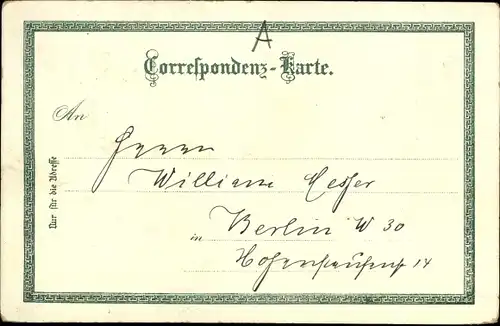 A
Correspondenz-Karte.
An
Herrn
William
in Berlin W 30
14
Nur für die Adresse